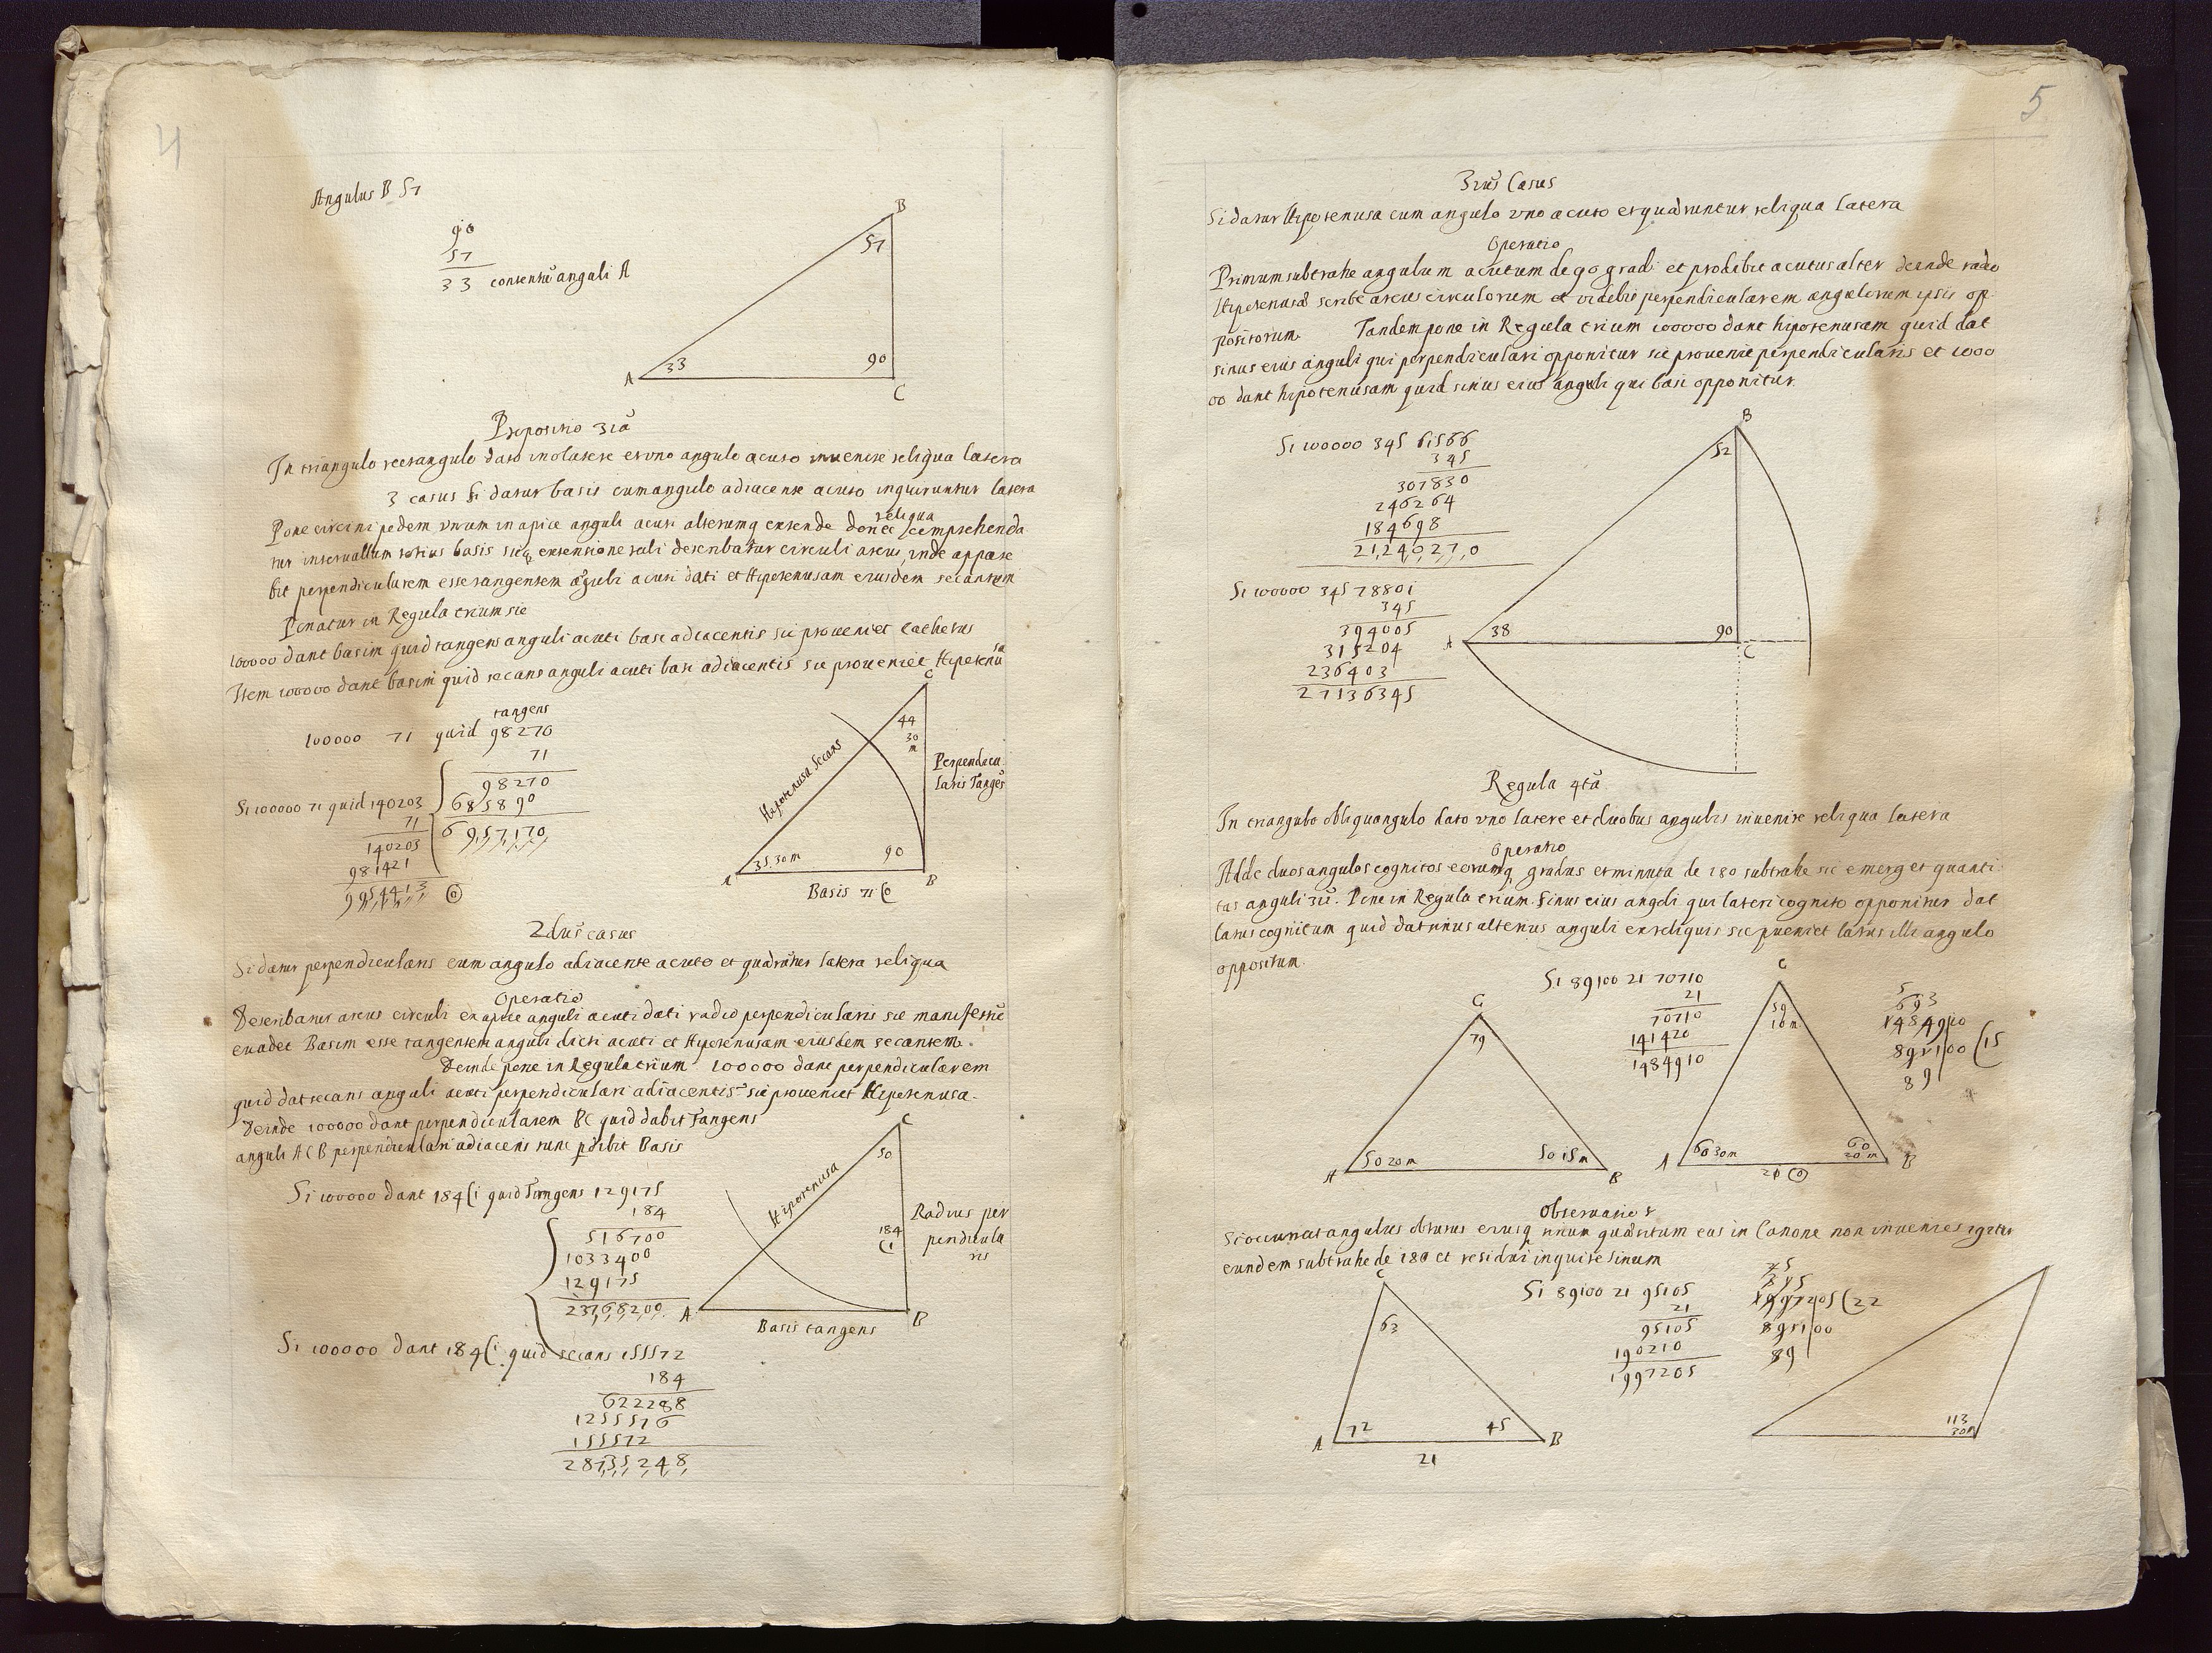 4
Angulus B 57
90
57
33 contentū anguli A
B
57
33
90
A
C
Propositio 3iā
In triangulo rectangulo dato uno latere et uno angulo acuto invenire reliqua latera
3 casus Si datur basis cum angulo adiacente acuto inquiruntur latera
reliqua
Pone circini pedem unum in apice anguli acuti alterumq extende donec comprehenda
tur intervallum totius basis sicq extensione tali describatur circuli arcus, inde appare
bit perpendicularem esse tangentem āguli acuti dati et Hipotenusam eiusdem secantem
Ponatur in Regula trium sic
100000 dant basim quid tangens anguli acuti basi adiacentis sic proveniet cathetus
Item 100000 dant basim quid secans anguli acuti basi adiacentis sic proveniet Hipotenusa
tangens
100000 71 quid 98270
71
98270
685890
6957170
Si 100000 71 quid 140203
71
140203
981421
9954413
C
44
30
m
Hipotenusa Secans
Perpendicu
laris Tangēs
35.30m
90
A
B
Basis 71
2dus casus
Si datur perpendicularis cum angulo adiacente acuto et quærātur latera reliqua
Operatio
Describatur arcus circuli ex apice anguli acuti dati radio perpendicularis sic manifestū
evadet Basim esse tangentem anguli dicti acuti et Hipotenusam eiusdem secantem.
Deinde pone in Regula trium 100000 dant perpendicularem
quid dat secans anguli acuti perpendiculari adiacentis sic proveniet Hipotenusa.
Deinde 100000 dant perpendicularem BC quid dabit Tangens
anguli ACB perpendiculari adiacens tunc pdibit Basis
Si 100000 dant 184(1 quid Tangens 129175
184
516700
1033400
129175
23768200
C
50
Hipotenusa
184
(1
Radius per
pendicula
ris
A
B
Basis tangens
Si 100000 dant 184(1 quid secans 155572
184
622288
1255576
155572
28735248
5
3ius Casus
Si datur Hipotenusa cum angulo uno acuto et quæruntur reliqua latera
Operatio
Primum subtrahe angulum acutum de 90 gradi et prodibit acutus alter deinde radio
Hipotenusæ scribe arcus circulorum et videbis perpendicularem angulorum ipsis op
positorum. Tandem pone in Regula trium 100000 dant hipotenusam quid dat
sinus eius anguli qui perpendiculari opponitur sic provenit perpendicularis et 1000
00 dant hipotenusam quid sinus eius anguli qui basi opponitur.
Si 100000 345 61566
345
307830
246264
184698
21240270
Si 100000 345 78801
345
394005
315204
236403
27136345
B
52
38
90
A
C
Regula 4tā
In triangulo obliquangulo dato uno latere et duobus angulis invenire reliqua latera
Operatio
Adde duos angulos cognitos eorumq gradus et minuta de 180 subtrahe sic emerget quanti
tas anguli 3ii. Pone in Regula trium. Sinus eius anguli qui lateri cognito opponitur dat
latus cognitum quid dat sinus alterius anguli ex reliquis sic pveniet latus illi angulo
oppositum.
Si 89100 21 70710
21
70710
141420
1484910
C
79
50 20m
50 15m
A
B
C
59
10m
60 30m
60
20m
A
B
21
5
693
1484910
891100 (15
89
Observatio
Si occurrat angulus obtusus eiusq sinum quæsitum eus in Canone non invenies igitur
eundem subtrahe de 180 et residui inquire sinum
Si 89100 21 95105
21
95105
190210
1997205
C
63
72
45
A
B
21
75
375
1997205 (22
891100
89
113
30m